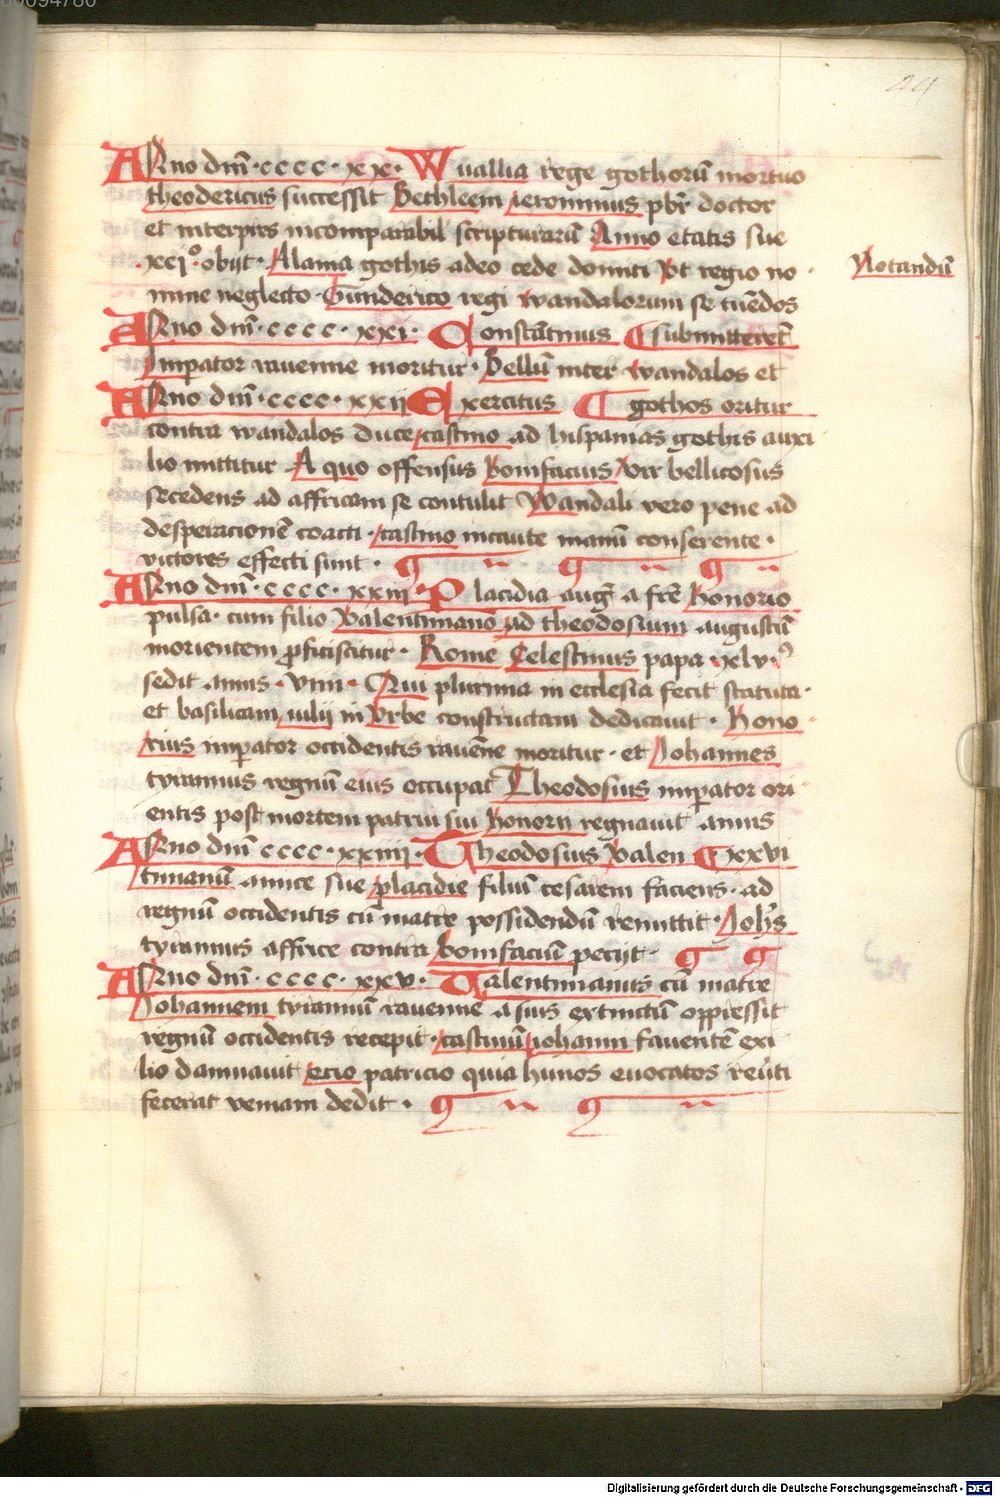 44
Anno dnī · cccc · xx · Wuallia rege gothorū mortuo
theodericus successit Bethleem ieronimus pbr̄ doctor
et interpres incomparabil scripturarū Anno etatis sue
· xcij° · obijt · Alania gothis adeo cede domiti Vt regio no
Notandū
mine neglecto · Gunderico regi wandalorum se tuēdos
Anno dnī · cccc · xxi · Constātinus ¶ submitterēt
Imperator rauenne moritur · Bellū inter wandalos et
Anno dnī · cccc · xxij Exercitus ¶ gothos oritur
contra wandalos duce castino ad hispanias gothis auxi
lio mittitur A quo offensus bonifacius vir bellicosus
secedens ad affricam se contulit Wandali vero pene ad
desperacionē coacti · castino incaute manū conserente ·
victores effecti sunt ·
Anno dnī · cccc · xxiii · Placidia auḡ a frē honorio
pulsa · cum filio Valentiniano ad theodosium augustū
morientem proficiscitur · Rome Celestinus papa xlv ·
sedit annis · viiii · Qui plurima in ecclesia fecit statuta ·
et basilicam iulij in Vrbe constructam dedicauit · Hono
rius imperator occidentis rauēne moritur · et Johannes
tyrannus regnū eius occupat Theodosius imperator ori
entis post mortem patrui sui honorii regnauit annis
Anno dnī cccc · xxiiij · Theodosius Valen ¶ xxvi
tinianū amice sue placidie filiū cesarem faciens · ad
regnū occidentis cū matre possidendū remittit · Johēs
tyrannus affrice contra bonifaciū pecijt ·
Anno dnī · cccc · xxv · Valentinianus cū matre
Johannem tyrannū rauenne a suis extinctū oppressit
regnū occidentis recepit · castinū iohanni fauentē exi
lio damnauit ecio patricio quia hunos euocatos reūti
fecerat veniam dedit ·
Digitalisierung gefördert durch die Deutsche Forschungsgemeinschaft - DFG